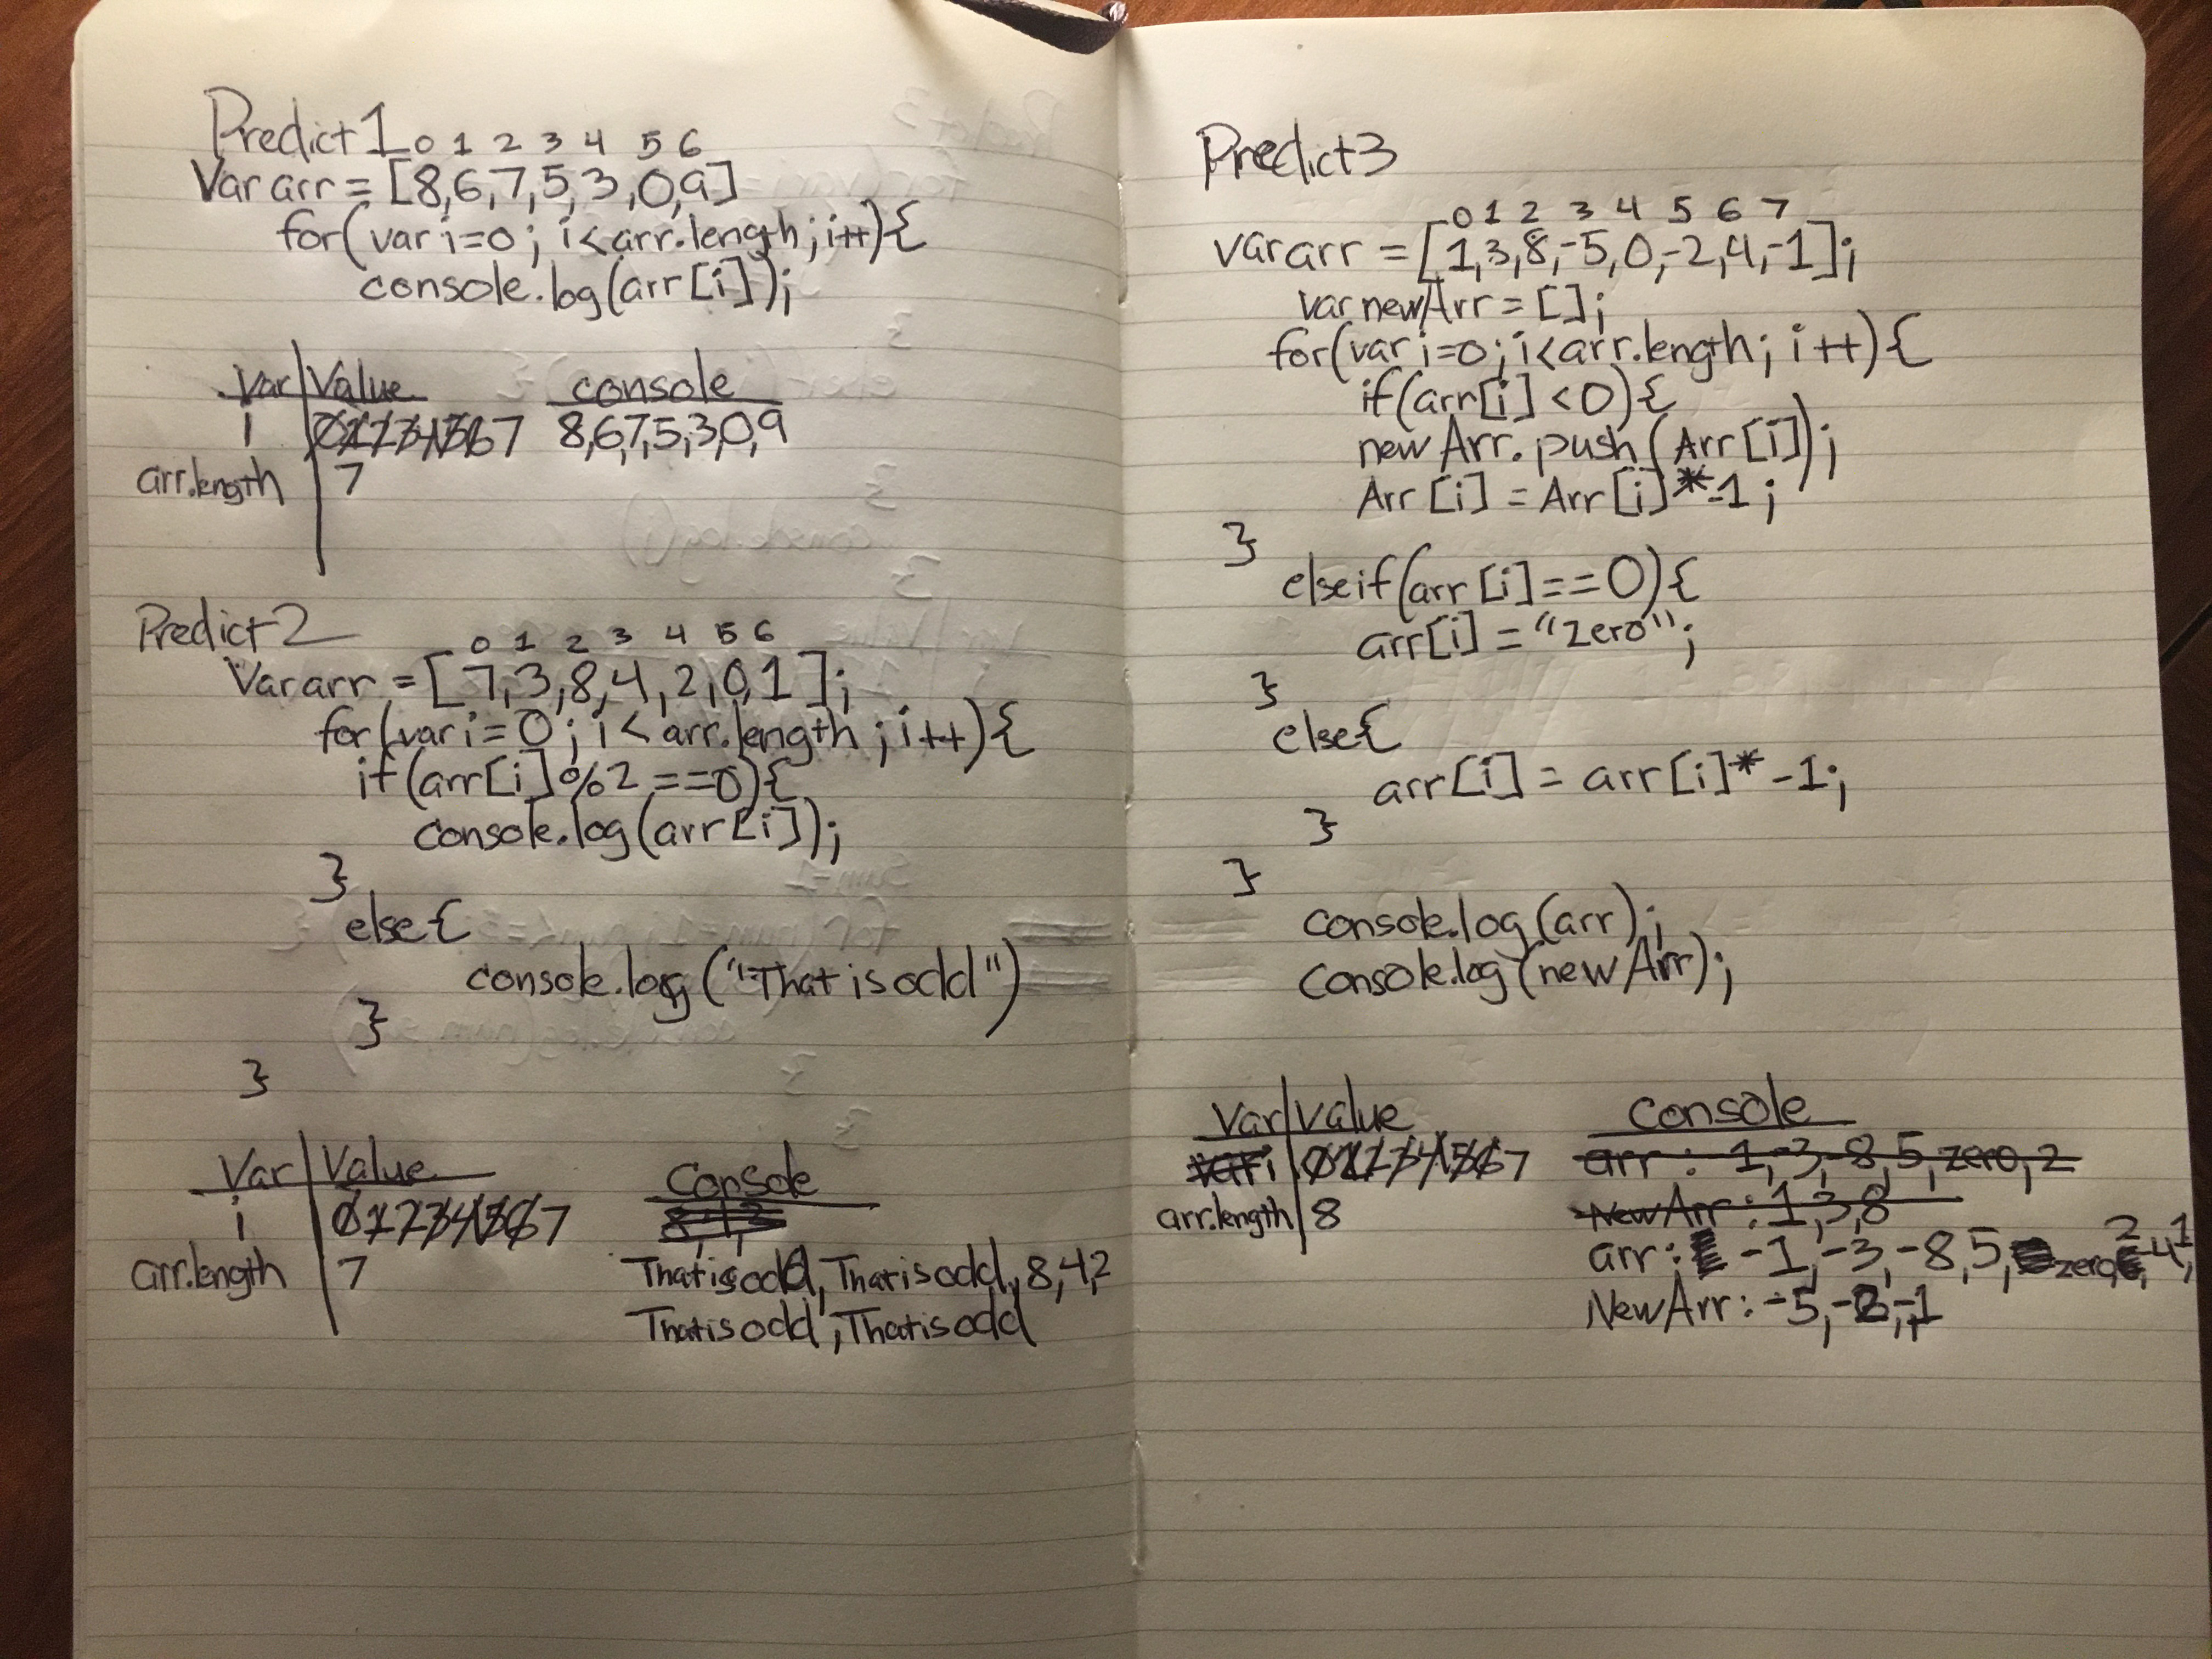 Predict 1
0 1 2 3 4 5 6
Var arr = [8,6,7,5,3,0,9]
for(var i=0; i<arr.length; i++){
console.log(arr[i]);
Var Value console
i 0 1 2 3 4 5 6 7 8,6,7,5,3,0,9
arr.length 7
Predict 2
0 1 2 3 4 5 6
Var arr = [7,3,8,4,2,0,1];
for(var i=0; i<arr.length; i++){
if(arr[i]%2==0){
console.log(arr[i]);
}
else{
console.log("That is odd")
}
}
Var Value Console
i 0 1 2 3 4 5 6 7
arr.length 7 That is odd, That is odd, 8,4,2
That is odd, That is odd
Predict 3
0 1 2 3 4 5 6 7
var arr = [1,3,8,-5,0,-2,4,-1];
var newArr = [];
for(var i=0; i<arr.length; i++){
if(arr[i] <0){
new Arr.push(Arr[i]);
Arr[i] = Arr[i]*-1;
}
else if(arr[i]==0){
arr[i] = "Zero";
}
else{
arr[i] = arr[i]*-1;
}
}
console.log(arr);
console.log(newArr);
Var Value Console
var i 0 1 2 3 4 5 6 7 arr: 1,-3,-8,5,zero,2
arr.length 8 NewArr: 1,3,8
arr: -1,-3,-8,5, zero, 2, -4, 1
NewArr: -5,-2,-1